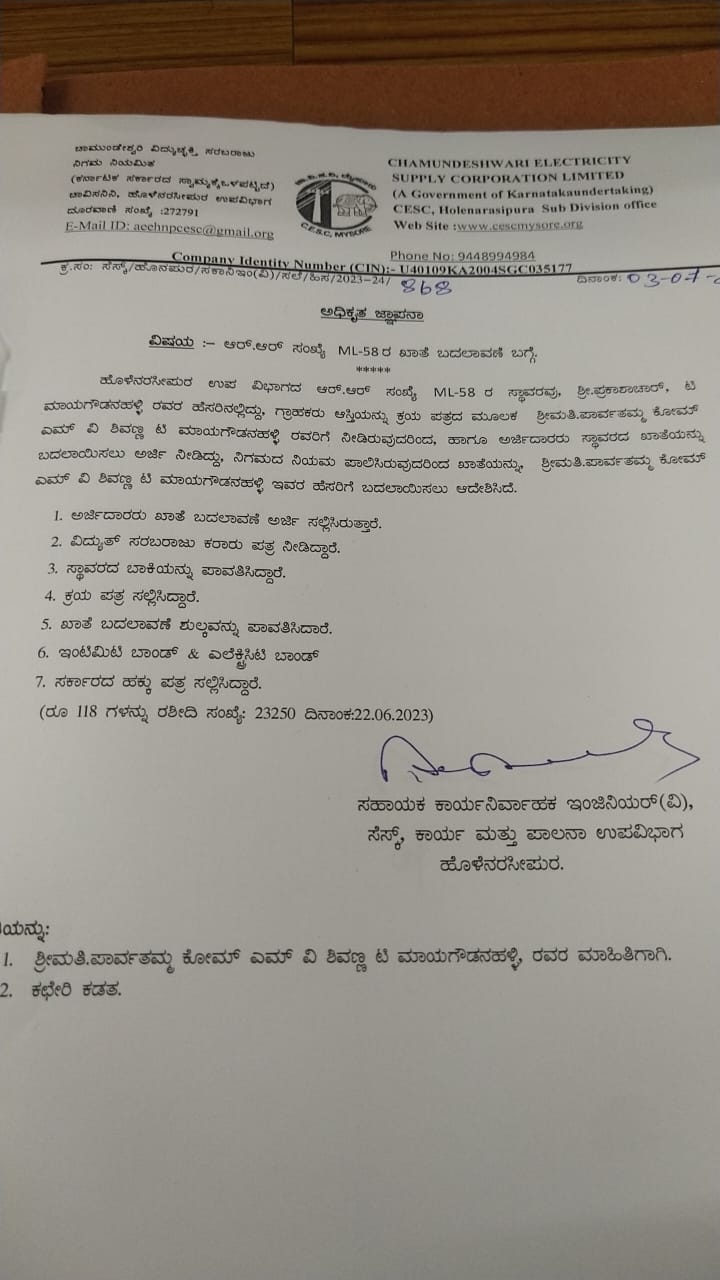 ಚಾಮುಂಡೇಶ್ವರಿ ವಿದ್ಯುಚ್ಛಕ್ತಿ ಸರಬರಾಜು
ನಿಗಮ ನಿಯಮಿತ
(ಕರ್ನಾಟಕ ಸರ್ಕಾರದ ಸ್ವಾಮ್ಯಕ್ಕೊಳಪಟ್ಟಿದೆ)
ಚಾವಿಸನಿನಿ, ಹೊಳೆನರಸೀಪುರ ಉಪವಿಭಾಗ
ದೂರವಾಣಿ ಸಂಖ್ಯೆ :272791
E-Mail ID: aeehnpcesc@gmail.org
C.E.S.C, MYSORE
CHAMUNDESHWARI ELECTRICITY
SUPPLY CORPORATION LIMITED
(A Government of Karnatakaundertaking)
CESC, Holenarasipura Sub Division office
Web Site :www.cescmysore.org
Phone No: 9448994984
Company Identity Number (CIN):- U40109KA2004SGC035177
ಕ್ರ.ಸಂ: ಸೆಸ್ಕ್/ಹೊನಪುರ/ಸಕಾನಿಇಂ(ವಿ)/ಸಲೆ/ಹಿಸ/2023-24/ 868 ದಿನಾಂಕ: 03-07-
ಅಧಿಕೃತ ಜ್ಞಾಪನಾ
ವಿಷಯ :– ಆರ್.ಆರ್ ಸಂಖ್ಯೆ ML-58 ರ ಖಾತೆ ಬದಲಾವಣೆ ಬಗ್ಗೆ.
*****
ಹೊಳೆನರಸೀಪುರ ಉಪ ವಿಭಾಗದ ಆರ್.ಆರ್ ಸಂಖ್ಯೆ ML-58 ರ ಸ್ಥಾವರವು, ಶ್ರೀ.ಪ್ರಕಾಶಾಚಾರ್, ಟಿ
ಮಾಯಗೌಡನಹಳ್ಳಿ ರವರ ಹೆಸರಿನಲ್ಲಿದ್ದು, ಗ್ರಾಹಕರು ಆಸ್ತಿಯನ್ನು ಕ್ರಯ ಪತ್ರದ ಮೂಲಕ ಶ್ರೀಮತಿ.ಪಾರ್ವತಮ್ಮ ಕೋಮ್
ಎಮ್ ವಿ ಶಿವಣ್ಣ ಟಿ ಮಾಯಗೌಡನಹಳ್ಳಿ ರವರಿಗೆ ನೀಡಿರುವುದರಿಂದ, ಹಾಗೂ ಅರ್ಜಿದಾರರು ಸ್ಥಾವರದ ಖಾತೆಯನ್ನು
ಬದಲಾಯಿಸಲು ಅರ್ಜಿ ನೀಡಿದ್ದು, ನಿಗಮದ ನಿಯಮ ಪಾಲಿಸಿರುವುದರಿಂದ ಖಾತೆಯನ್ನು, ಶ್ರೀಮತಿ.ಪಾರ್ವತಮ್ಮ ಕೋಮ್
ಎಮ್ ವಿ ಶಿವಣ್ಣ ಟಿ ಮಾಯಗೌಡನಹಳ್ಳಿ ಇವರ ಹೆಸರಿಗೆ ಬದಲಾಯಿಸಲು ಆದೇಶಿಸಿದೆ.
1. ಅರ್ಜಿದಾರರು ಖಾತೆ ಬದಲಾವಣೆ ಅರ್ಜಿ ಸಲ್ಲಿಸಿರುತ್ತಾರೆ.
2. ವಿದ್ಯುತ್ ಸರಬರಾಜು ಕರಾರು ಪತ್ರ ನೀಡಿದ್ದಾರೆ.
3. ಸ್ಥಾವರದ ಬಾಕಿಯನ್ನು ಪಾವತಿಸಿದ್ದಾರೆ.
4. ಕ್ರಯ ಪತ್ರ ಸಲ್ಲಿಸಿದ್ದಾರೆ.
5. ಖಾತೆ ಬದಲಾವಣೆ ಶುಲ್ಕವನ್ನು ಪಾವತಿಸಿದಾರೆ.
6. ಇಂಟಿಮಿಟಿ ಬಾಂಡ್ & ಎಲೆಕ್ಟ್ರಿಸಿಟಿ ಬಾಂಡ್
7. ಸರ್ಕಾರದ ಹಕ್ಕು ಪತ್ರ ಸಲ್ಲಿಸಿದ್ದಾರೆ.
(ರೂ 118 ಗಳನ್ನು ರಶೀದಿ ಸಂಖ್ಯೆ: 23250 ದಿನಾಂಕ:22.06.2023)
ಸಹಾಯಕ ಕಾರ್ಯನಿರ್ವಾಹಕ ಇಂಜಿನಿಯರ್(ವಿ),
ಸೆಸ್ಕ್, ಕಾರ್ಯ ಮತ್ತು ಪಾಲನಾ ಉಪವಿಭಾಗ
ಹೊಳೆನರಸೀಪುರ.
ಯನ್ನು:
1. ಶ್ರೀಮತಿ.ಪಾರ್ವತಮ್ಮ ಕೋಮ್ ಎಮ್ ವಿ ಶಿವಣ್ಣ ಟಿ ಮಾಯಗೌಡನಹಳ್ಳಿ, ರವರ ಮಾಹಿತಿಗಾಗಿ.
2. ಕಛೇರಿ ಕಡತ.